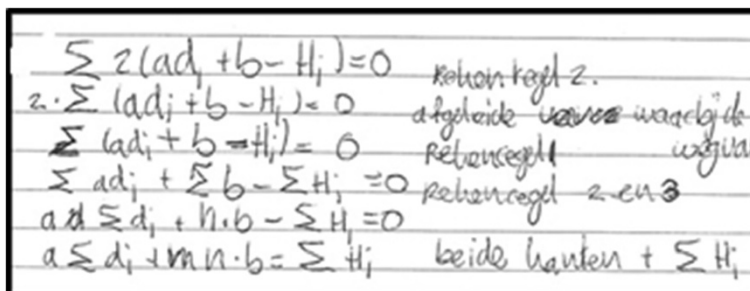 ∑ 2(ad_i + b - H_i) = 0 Rekenregel 2.
2 · ∑ (ad_i + b - H_i) = 0 afgeleide waarbij de
∑ (ad_i + b - H_i) = 0 Rekenregel 1
∑ ad_i + ∑ b - ∑ H_i = 0 Rekenregel 2 en 3
a ∑ d_i + n·b - ∑ H_i = 0
a ∑ d_i + n·b = ∑ H_i beide kanten + ∑ H_i